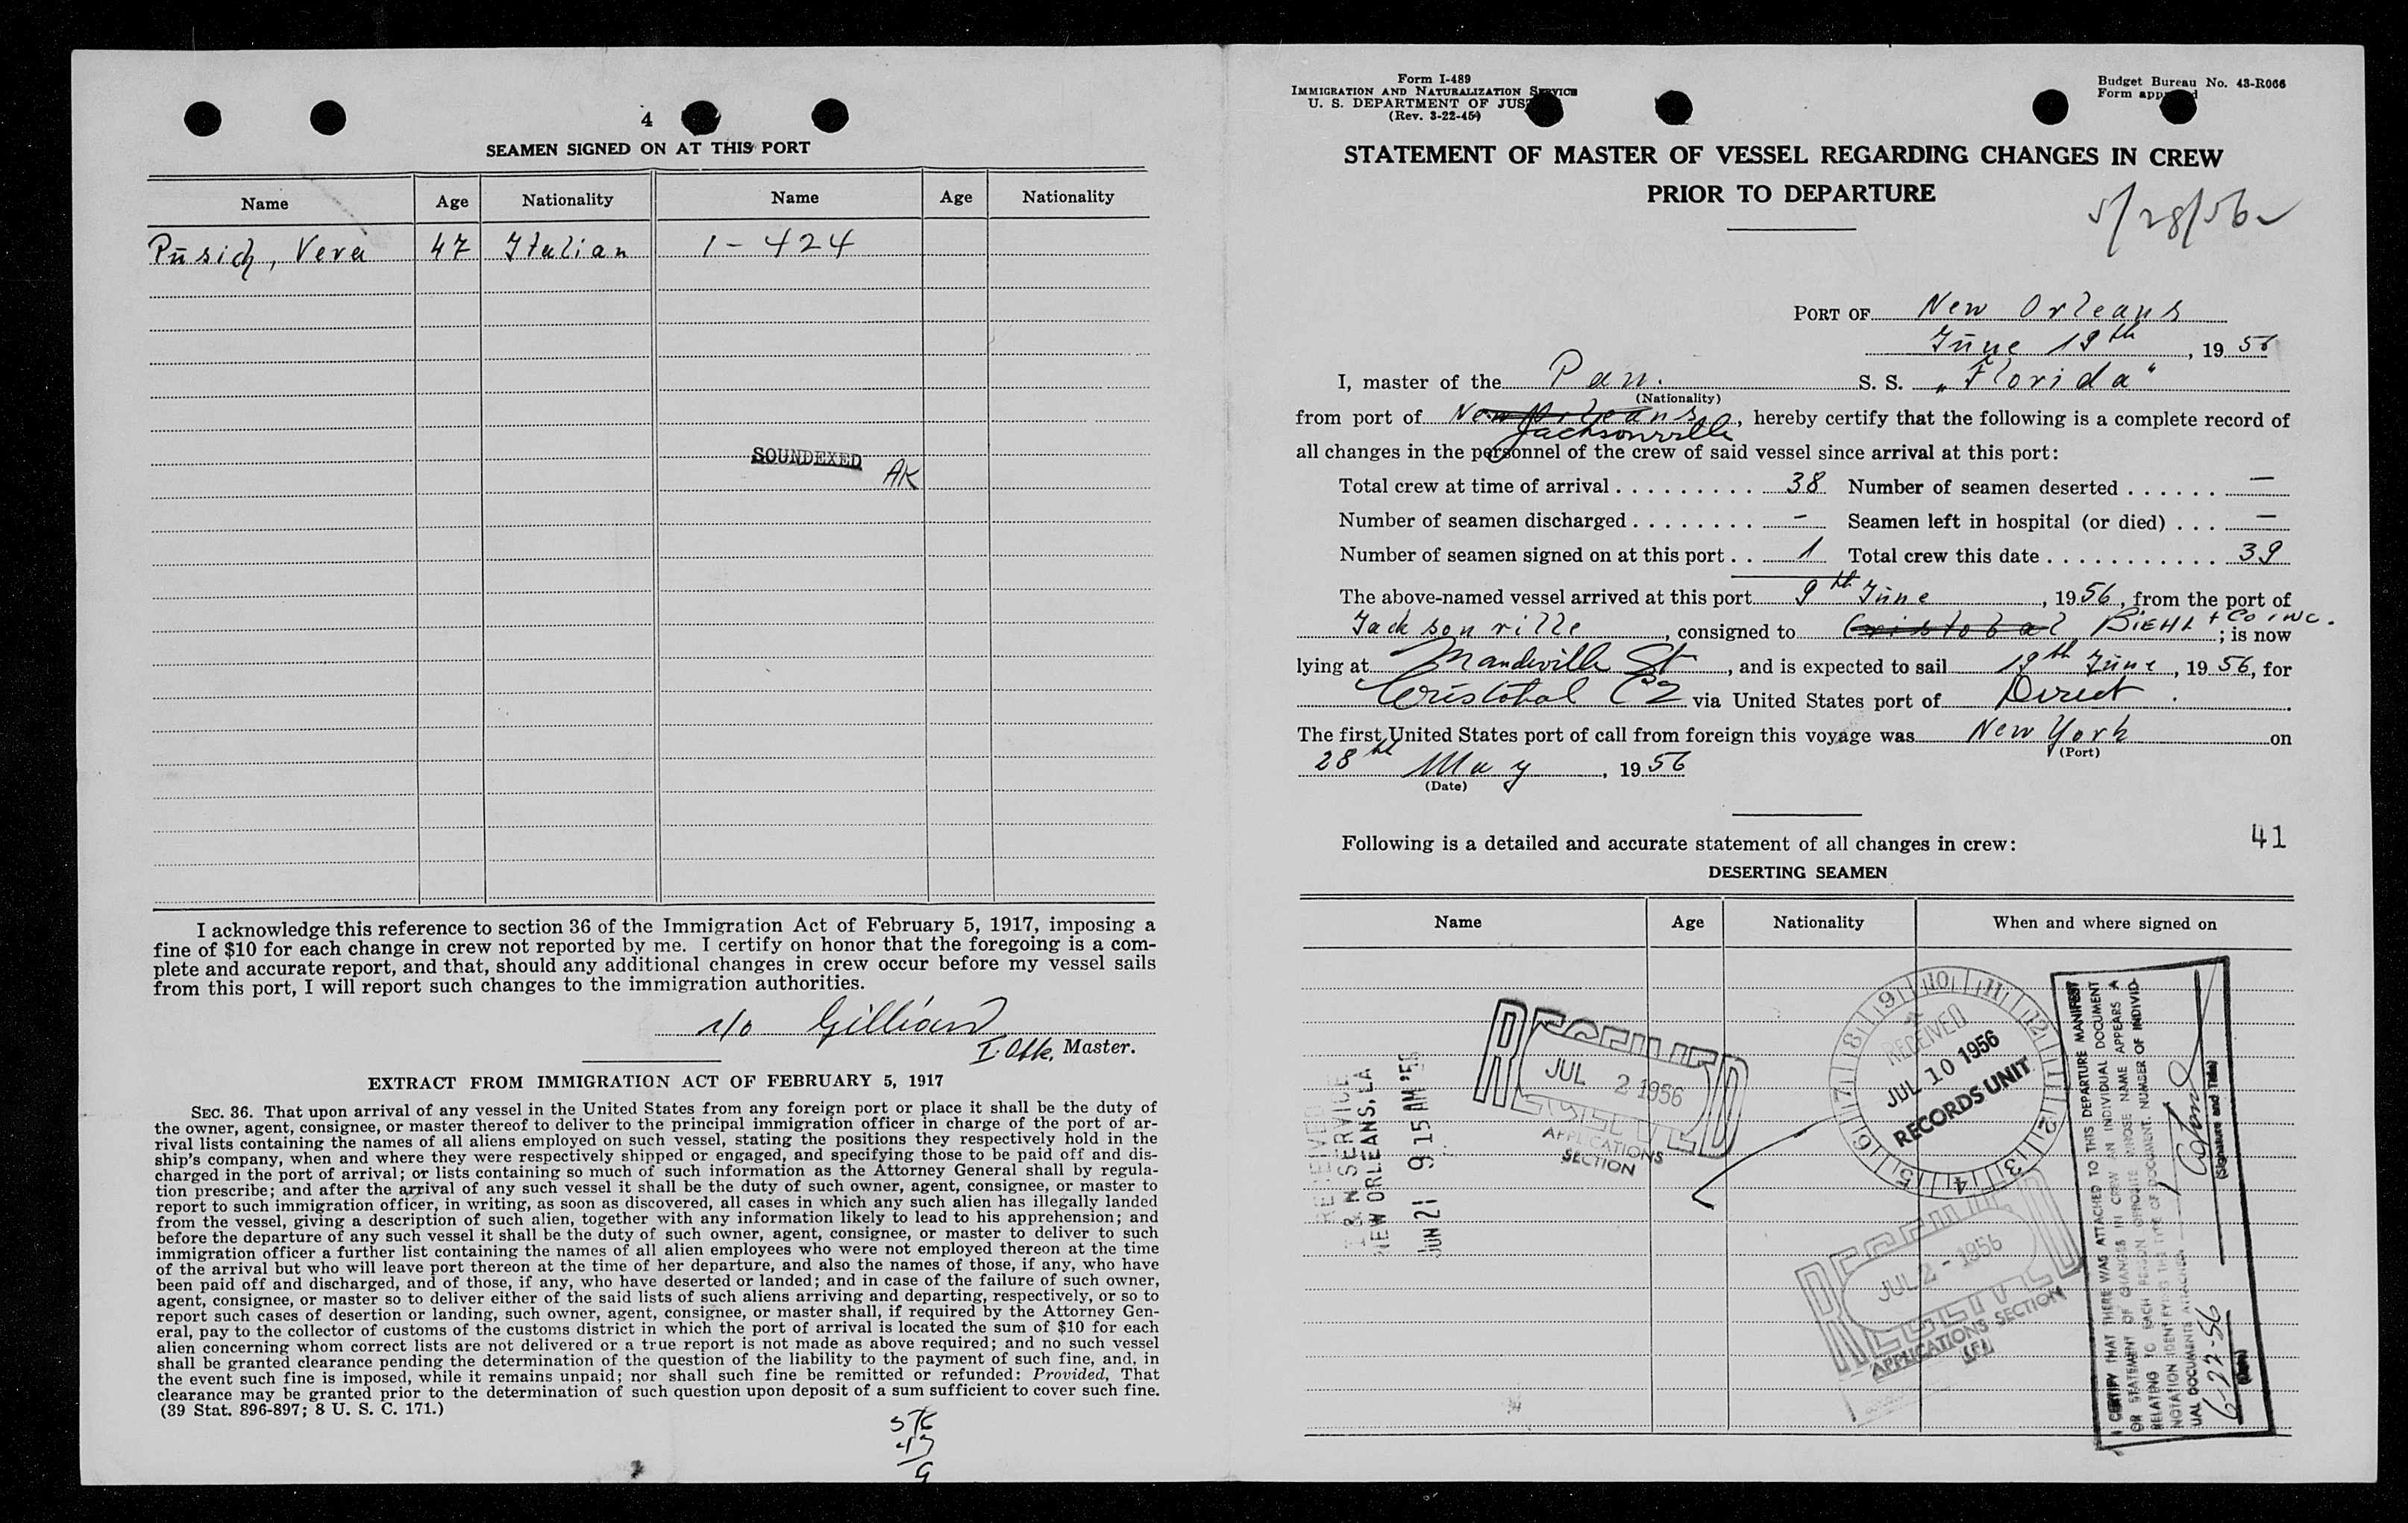 4
SEAMEN SIGNED ON AT THIS PORT
Name Age Nationality Name Age Nationality
Pusich, Vera 47 Italian 1-424
SOUNDEXED
AK
I acknowledge this reference to section 36 of the Immigration Act of February 5, 1917, imposing a
fine of $10 for each change in crew not reported by me. I certify on honor that the foregoing is a com-
plete and accurate report, and that, should any additional changes in crew occur before my vessel sails
from this port, I will report such changes to the immigration authorities.
Master.
EXTRACT FROM IMMIGRATION ACT OF FEBRUARY 5, 1917
SEC. 36. That upon arrival of any vessel in the United States from any foreign port or place it shall be the duty of
the owner, agent, consignee, or master thereof to deliver to the principal immigration officer in charge of the port of ar-
rival lists containing the names of all aliens employed on such vessel, stating the positions they respectively hold in the
ship's company, when and where they were respectively shipped or engaged, and specifying those to be paid off and dis-
charged in the port of arrival; or lists containing so much of such information as the Attorney General shall by regula-
tion prescribe; and after the arrival of any such vessel it shall be the duty of such owner, agent, consignee, or master to
report to such immigration officer, in writing, as soon as discovered, all cases in which any such alien has illegally landed
from the vessel, giving a description of such alien, together with any information likely to lead to his apprehension; and
before the departure of any such vessel it shall be the duty of such owner, agent, consignee, or master to deliver to such
immigration officer a further list containing the names of all alien employees who were not employed thereon at the time
of the arrival but who will leave port thereon at the time of her departure, and also the names of those, if any, who have
been paid off and discharged, and of those, if any, who have deserted or landed; and in case of the failure of such owner,
agent, consignee, or master so to deliver either of the said lists of such aliens arriving and departing, respectively, or so to
report such cases of desertion or landing, such owner, agent, consignee, or master shall, if required by the Attorney Gen-
eral, pay to the collector of customs of the customs district in which the port of arrival is located the sum of $10 for each
alien concerning whom correct lists are not delivered or a true report is not made as above required; and no such vessel
shall be granted clearance pending the determination of the question of the liability to the payment of such fine, and, in
the event such fine is imposed, while it remains unpaid; nor shall such fine be remitted or refunded: Provided, That
clearance may be granted prior to the determination of such question upon deposit of a sum sufficient to cover such fine.
(39 Stat. 896-897; 8 U. S. C. 171.)
Form I-489
IMMIGRATION AND NATURALIZATION SERVICE
U. S. DEPARTMENT OF JUS
(Rev. 3-22-45)
Budget Bureau No. 43-R066
Form app
STATEMENT OF MASTER OF VESSEL REGARDING CHANGES IN CREW
PRIOR TO DEPARTURE
5/28/56
PORT OF New Orleans
June 19th, 1956
I, master of the Pan. S. S. „Florida"
(Nationality)
from port of New Orleans Jacksonville, hereby certify that the following is a complete record of
all changes in the personnel of the crew of said vessel since arrival at this port:
Total crew at time of arrival 38 Number of seamen deserted —
Number of seamen discharged - Seamen left in hospital (or died) —
Number of seamen signed on at this port 1 Total crew this date 39
The above-named vessel arrived at this port 9th June, 1956, from the port of
Jacksonville, consigned to Cristobal BIEHL + CO INC.; is now
lying at Mandeville St, and is expected to sail 19th June, 1956, for
Cristobal CZ via United States port of Direct.
The first United States port of call from foreign this voyage was New York on
(Port)
28th May, 1956
(Date)
Following is a detailed and accurate statement of all changes in crew:
41
DESERTING SEAMEN
Name Age Nationality When and where signed on
RECEIVED
I & N SERVICE
NEW ORLEANS, LA
JUN 21 9 15 AM '56
JUL 2 1956
APPLICATIONS
SECTION
RECEIVED
JUL 10 1956
RECORDS UNIT
JUL 2 - 1956
APPLICATIONS SECTION
I CERTIFY THAT THERE WAS ATTACHED TO THIS DEPARTURE MANIFEST
OR STATEMENT OF CHANGES IN CREW AN INDIVIDUAL DOCUMENT
RELATING TO EACH PERSON OPPOSITE WHOSE NAME APPEARS A
NOTATION IDENTIFYING THE TYPE OF DOCUMENT. NUMBER OF INDIVID-
UAL DOCUMENTS ATTACHED
(Signature and Title)
6-22-56
(Date)